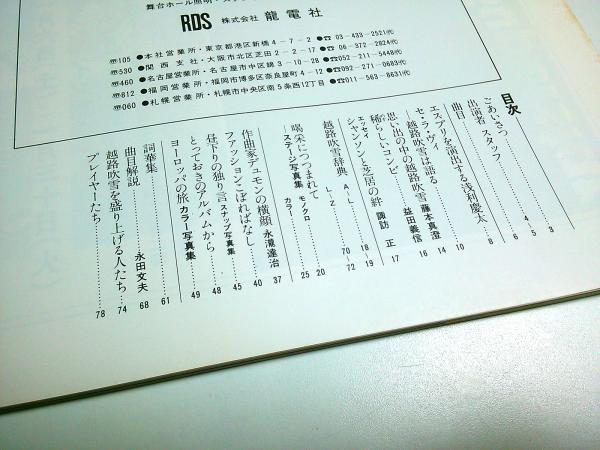 舞台ホール照明・スタジ
RDS 株式会社 龍電社
〒105 ●本社営業所・東京都港区新橋4-7-2 ●☎03-433-2521代
〒530 ●関西支社・大阪市北区芝田2-2-17 ●☎06-372-2824代
〒460 ●名古屋営業所・名古屋市中区錦3-10-28 ●☎052-211-5448代
〒812 ●福岡営業所・福岡市博多区奈良屋町4-12 ●☎092-271-0683代
〒060 ●札幌営業所・札幌市中央区南5条西12丁目 ●☎011-563-8631代
目次
ごあいさつ……3
出演者 スタッフ……4 5
曲目……6
エスプリを演出する浅利慶太……8
セ・ラ・ヴィ……10
越路吹雪は語る……14
思い出の中の越路吹雪 藤本真澄……16
稀らしいコンビ 益田義信……17
エッセイ
シャンソンと芝居の絆 諏訪 正……18〜19
越路吹雪辞典 A〜L……70〜72
L〜Z……20
喝采につつまれて
ステージ写真集 モノクロ……25
カラー……37
作曲家デュモンの横顔 永瀧達治……40
ファッションこぼればなし……45
昼下りの独り言 スナップ写真集……48
とっておきのアルバムから……49
ヨーロッパの旅 カラー写真集
詞華集……61
曲目解説 永田文夫……68
越路吹雪を盛り上げる人たち……74
プレイヤーたち……78